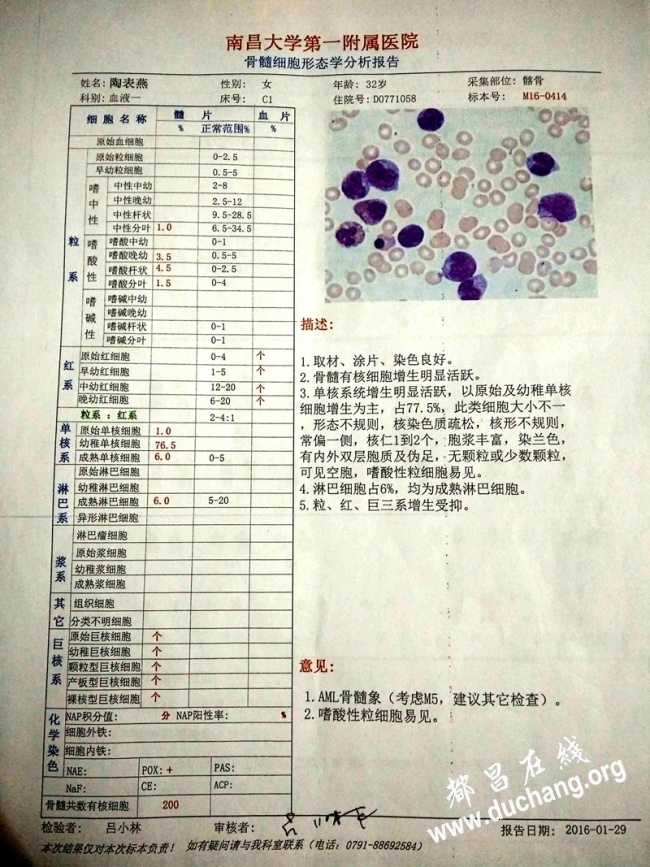 南昌大学第一附属医院
骨髓细胞形态学分析报告
姓名: 陶表燕 性别: 女 年龄: 32岁 采集部位: 髂骨
科别: 血液一 床号: C1 住院号: D0771058 标本号: M16-0414
细胞名称 髓片 血片
% 正常范围% %
原始血细胞
粒系
原始粒细胞 0-2.5
早幼粒细胞 0.5-5
嗜中性
中性中幼 2-8
中性晚幼 2.5-12
中性杆状 9.5-28.5
中性分叶 1.0 6.5-34.5
嗜酸性
嗜酸中幼 0-1
嗜酸晚幼 3.5 0.5-5
嗜酸杆状 4.5 0-2.5
嗜酸分叶 1.5 0-4
嗜碱性
嗜碱中幼
嗜碱晚幼
嗜碱杆状 0-1
嗜碱分叶 0-1
红系
原始红细胞 0-4 个
早幼红细胞 1-5 个
中幼红细胞 12-20 个
晚幼红细胞 6-20 个
粒系:红系 2-4:1
单核系
原始单核细胞 1.0
幼稚单核细胞 76.5
成熟单核细胞 6.0 0-5
淋巴系
原始淋巴细胞
幼稚淋巴细胞
成熟淋巴细胞 6.0 5-20
异形淋巴细胞
淋巴瘤细胞
浆系
原始浆细胞
幼稚浆细胞
成熟浆细胞
其它
组织细胞
分类不明细胞
巨核系
原始巨核细胞 个
幼稚巨核细胞 个
颗粒型巨核细胞 个
产板型巨核细胞 个
裸核型巨核细胞 个
化学染色
NAP积分值: 分 NAP阳性率: %
细胞外铁:
细胞内铁:
NAE: POX: + PAS:
NaF: CE: ACP:
骨髓共数有核细胞 200
描述:
1.取材、涂片、染色良好。
2.骨髓有核细胞增生明显活跃。
3.单核系统增生明显活跃，以原始及幼稚单核
细胞增生为主，占77.5%，此类细胞大小不一
，形态不规则，核染色质疏松，核形不规则，
常偏一侧，核仁1到2个，胞浆丰富，染兰色，
有内外双层胞质及伪足，无颗粒或少数颗粒，
可见空胞，嗜酸性粒细胞易见。
4.淋巴细胞占6%，均为成熟淋巴细胞。
5.粒、红、巨三系增生受抑。
意见:
1.AML骨髓象（考虑M5，建议其它检查）。
2.嗜酸性粒细胞易见。
都昌在线
www.duchang.org
检验者: 吕小林 审核者: 报告日期: 2016-01-29
本次结果仅对本次标本负责! 如有疑问请与我科室联系（电话: 0791-88692584）